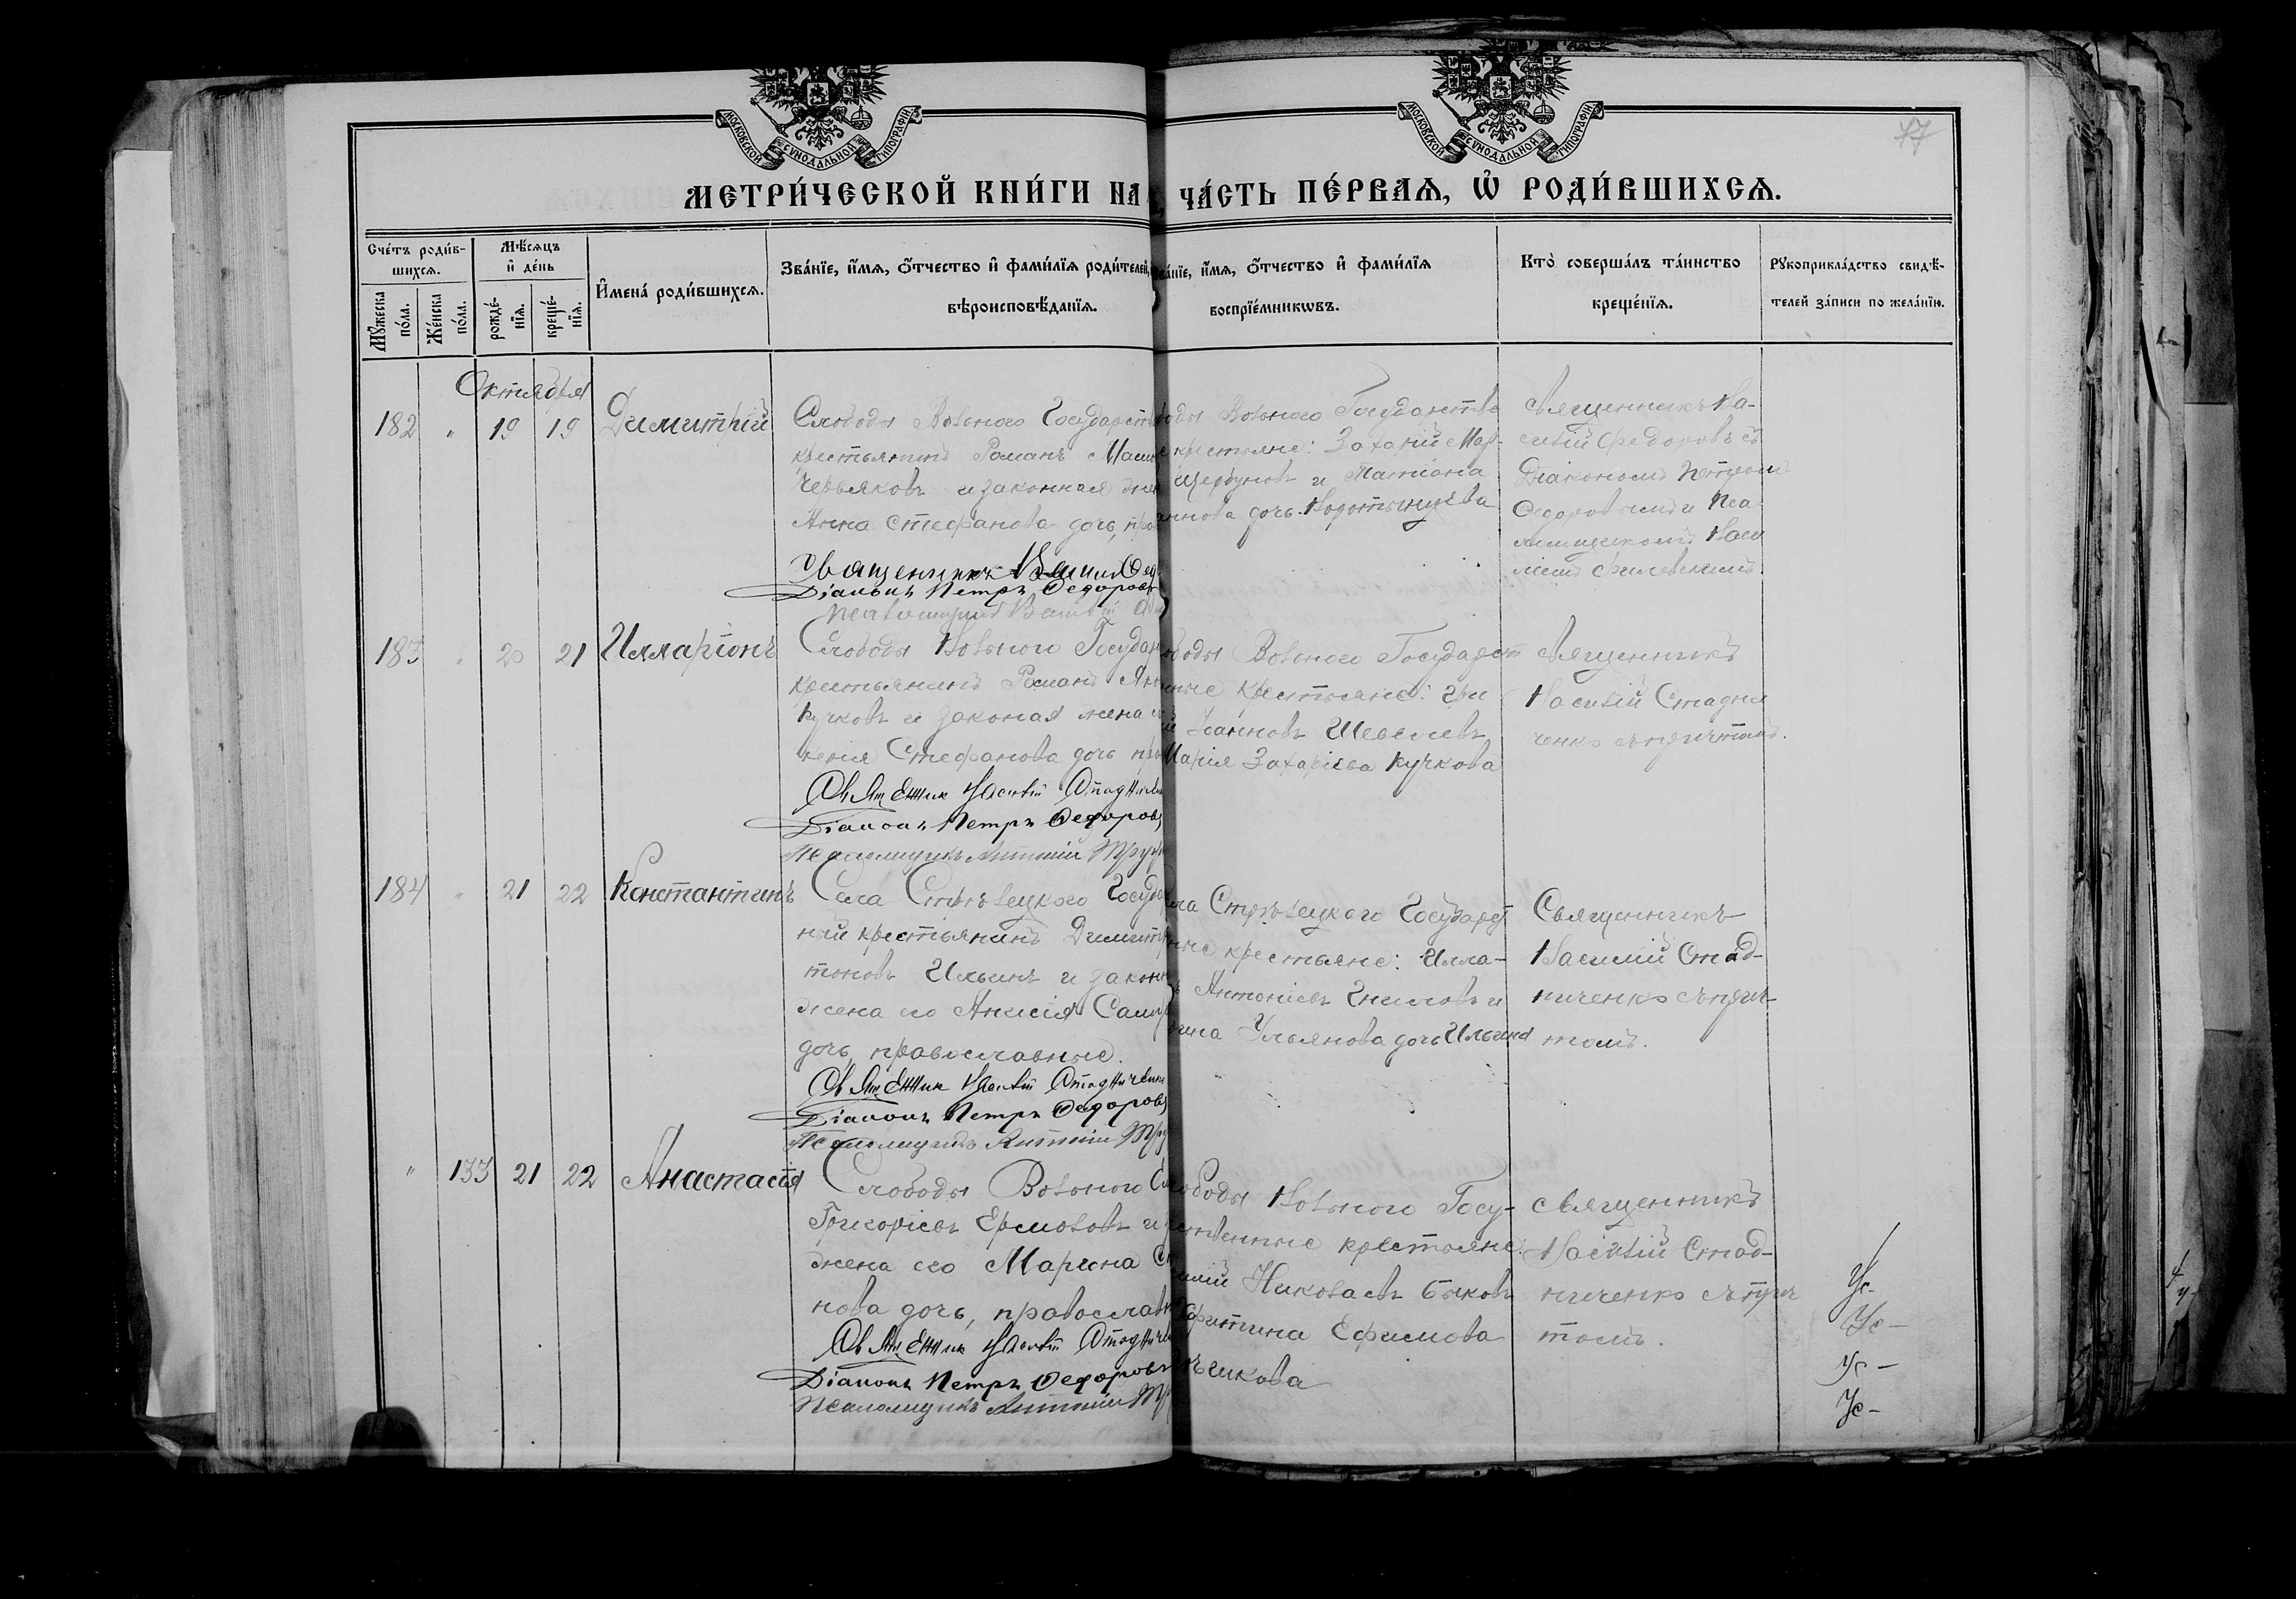 МОСКОВСКОЙ СѴНОДАЛЬНОЙ ТИПОГРАФІИ
МОСКОВСКОЙ СѴНОДАЛЬНОЙ ТИПОГРАФІИ
17
МЕТРИ́ЧЕСКОЙ КНИ́ГИ НА
ЧА́СТЬ ПЕ́РВАѦ, Ѡ҆ РОДИ́ВШИХСѦ.
Сче́тъ роди́в-
шихсѧ.
Мꙋ́жеска по́ла.
Же́нска по́ла.
Мѣ́сѧцъ
и҆ де́нь
рожде́-
нїѧ.
креще́-
нїѧ.
И҆мена̀ роди́вшихсѧ.
Зва́нїе, и҆́мѧ, ѻ҆́тчество и҆ фами́лїѧ роди́телей,
вѣроисповѣ́данїѧ.
ва́нїе, и҆́мѧ, ѻ҆́тчество и҆ фами́лїѧ
воспрїе́мникѡвъ.
Кто̀ соверша́лъ та́инство
креще́нїѧ.
Рꙋкоприкла́дство свидѣ́-
телей за́писи по жела́нїю.
Октября
182 " 19 19 Димитрій
Слободы Вольного Государст
крестьянинъ Романъ
Червяковъ и законная
Анна Стефанова дочь,
Священникъ
Діаконъ Петръ Ѳедоровъ
боды Вольного Государства
крестьяне: Захарій Мар-
Щербуновъ и Татіана
аннова дочь
Священникъ Ва-
силій Федоровъ съ
Діакономъ Петромъ
183 " 20 21 Илларіонъ
Слободы Вольного Государ
крестьянинъ Романъ
Кучковъ и законая жена
Стефанова дочь
Священник Василій Стаднич
Діаконъ Петръ Ѳедоровъ
Псаломщикъ Антоній
ободы Вольного Государст
ные крестьяне: Гри
Іоанновъ Шевелевъ
Марія Захаріева Кучкова
Священникъ
Василій Стадни
ченко съ причтомъ.
184 " 21 22 Константинъ
Села Стрѣлецкого Госуда
ный крестьянинъ Димитр
тоновъ Ильинъ и закон
жена его Анисія
дочь, православные.
Священник Василій Стадниченк
Діаконъ Петръ Ѳедоровъ
Псаломщикъ Антоній
ла Стрѣлецкого Государст
ные крестьяне: Илла-
Антоніевъ Гниловъ и
Ульянова дочь Ильина
Священникъ
Василій Стад-
ниченко съ прич-
томъ.
" 133 21 22 Анастасія
Слободы Вольного
Григоріевъ Ермоловъ и
жена его Марина
нова дочь, православн
Священник Василій Стаднич
Діаконъ Петръ Ѳедоровъ
Псаломщикъ Антоній
лободы Вольного Госу-
ственные крестьяне:
Николаевъ Быковъ
Ефимова
Священникъ
Василій Стад-
ниченко съ прич
томъ.